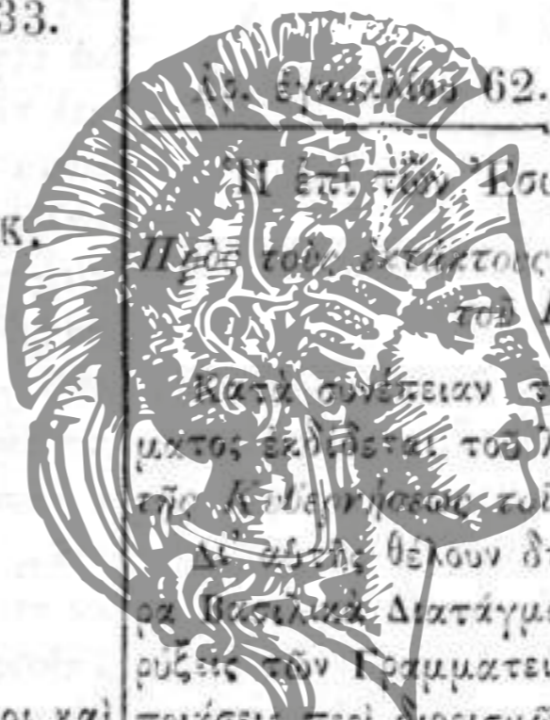 33.
κ.
οι καὶ
Ἀρ. ἐγκυκλίου 62.
Ἡ ἐπὶ τῶν Ἐσω
Πρὸς τοὺς ἐκτάκτους
τοῦ
Κατὰ συνέπειαν τ
ματος ἐκδίδεται τοῦ λ
τῆς Κυβερνήσεως του
Δι' αὐτῆς θέλουν δι
ρα Βασιλικὰ Διατάγμα
ρύξεις τῶν Γραμματει